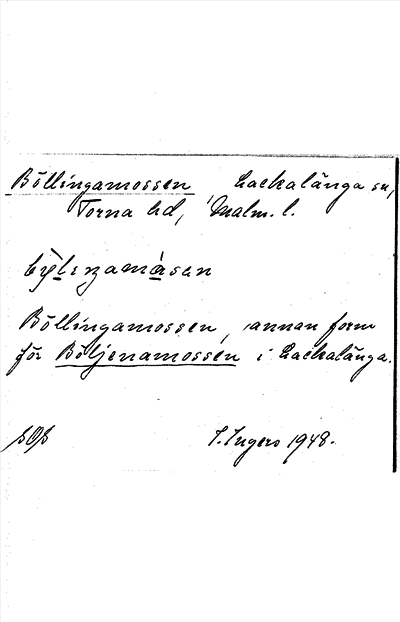 Böllingamossen Lackalänga sn,
Torna hd, Malm. l.
Böllingamossen, annan form
för Böljenamossen i Lackalänga.
I. Ingers 1948.